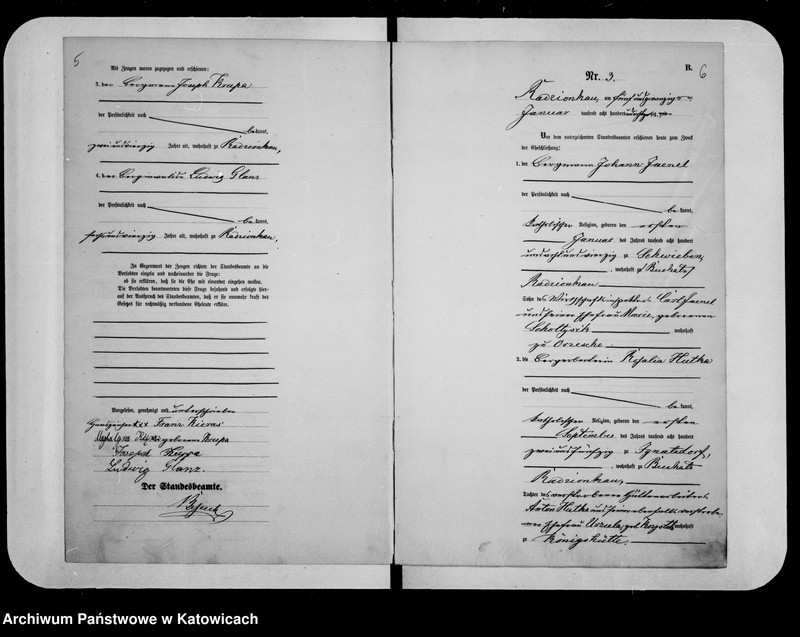 5
Als Zeugen waren zugezogen und erschienen:
3. der Bergmann Joseph Krupa
der Persönlichkeit nach
bekannt,
zweiundvierzig Jahre alt, wohnhaft zu Radzionkau,
4. der Berginvalide Ludwig Glanz
der Persönlichkeit nach
bekannt,
sechsundvierzig Jahre alt, wohnhaft zu Radzionkau,
In Gegenwart der Zeugen richtete der Standesbeamte an die
Verlobten einzeln und nacheinander die Frage:
ob sie erklären, daß sie die Ehe mit einander eingehen wollen.
Die Verlobten beantworteten diese Frage bejahend und erfolgte hier-
auf der Ausspruch des Standesbeamten, daß er sie nunmehr kraft des
Gesetzes für rechtmäßig verbundene Eheleute erkläre.
Vorgelesen, genehmigt und unterschrieben
Handzeichen xxx Franz Kieras
geborene Krupa
Joseph Krupa
Ludwig Glanz.
Der Standesbeamte.
B.
6
Nr. 3.
Radzionkau, am fünfundzwanzig
Januar tausend acht hundert
Vor dem unterzeichneten Standesbeamten erschienen heute zum Zweck
der Eheschließung:
1. der Bergmann Johann Jaenel
der Persönlichkeit nach
bekannt,
katholischer Religion, geboren den ersten
Januar des Jahres tausend acht hundert
undvierzig zu Schwieben,
, wohnhaft zu Buchatz
Radzionkau
Sohn des Wirthschaftsinspektors Carl Jaenel
und seiner Ehefrau Marie, geborenen
Scholtyssik wohnhaft
zu Orzesche.
2. die Bergarbeiterin Rosalia Hutka
der Persönlichkeit nach
bekannt,
katholischer Religion, geboren den ersten
September des Jahres tausend acht hundert
zweiundfünfzig zu Ignatzdorf,
, wohnhaft zu Buchatz
Radzionkau,
Tochter des verstorbenen Hüttenarbeiters
Anton Hutka und seiner ebenfalls verstorbe-
nen Ehefrau Ursula, geb. wohnhaft
zu Königshütte.
Archiwum Państwowe w Katowicach